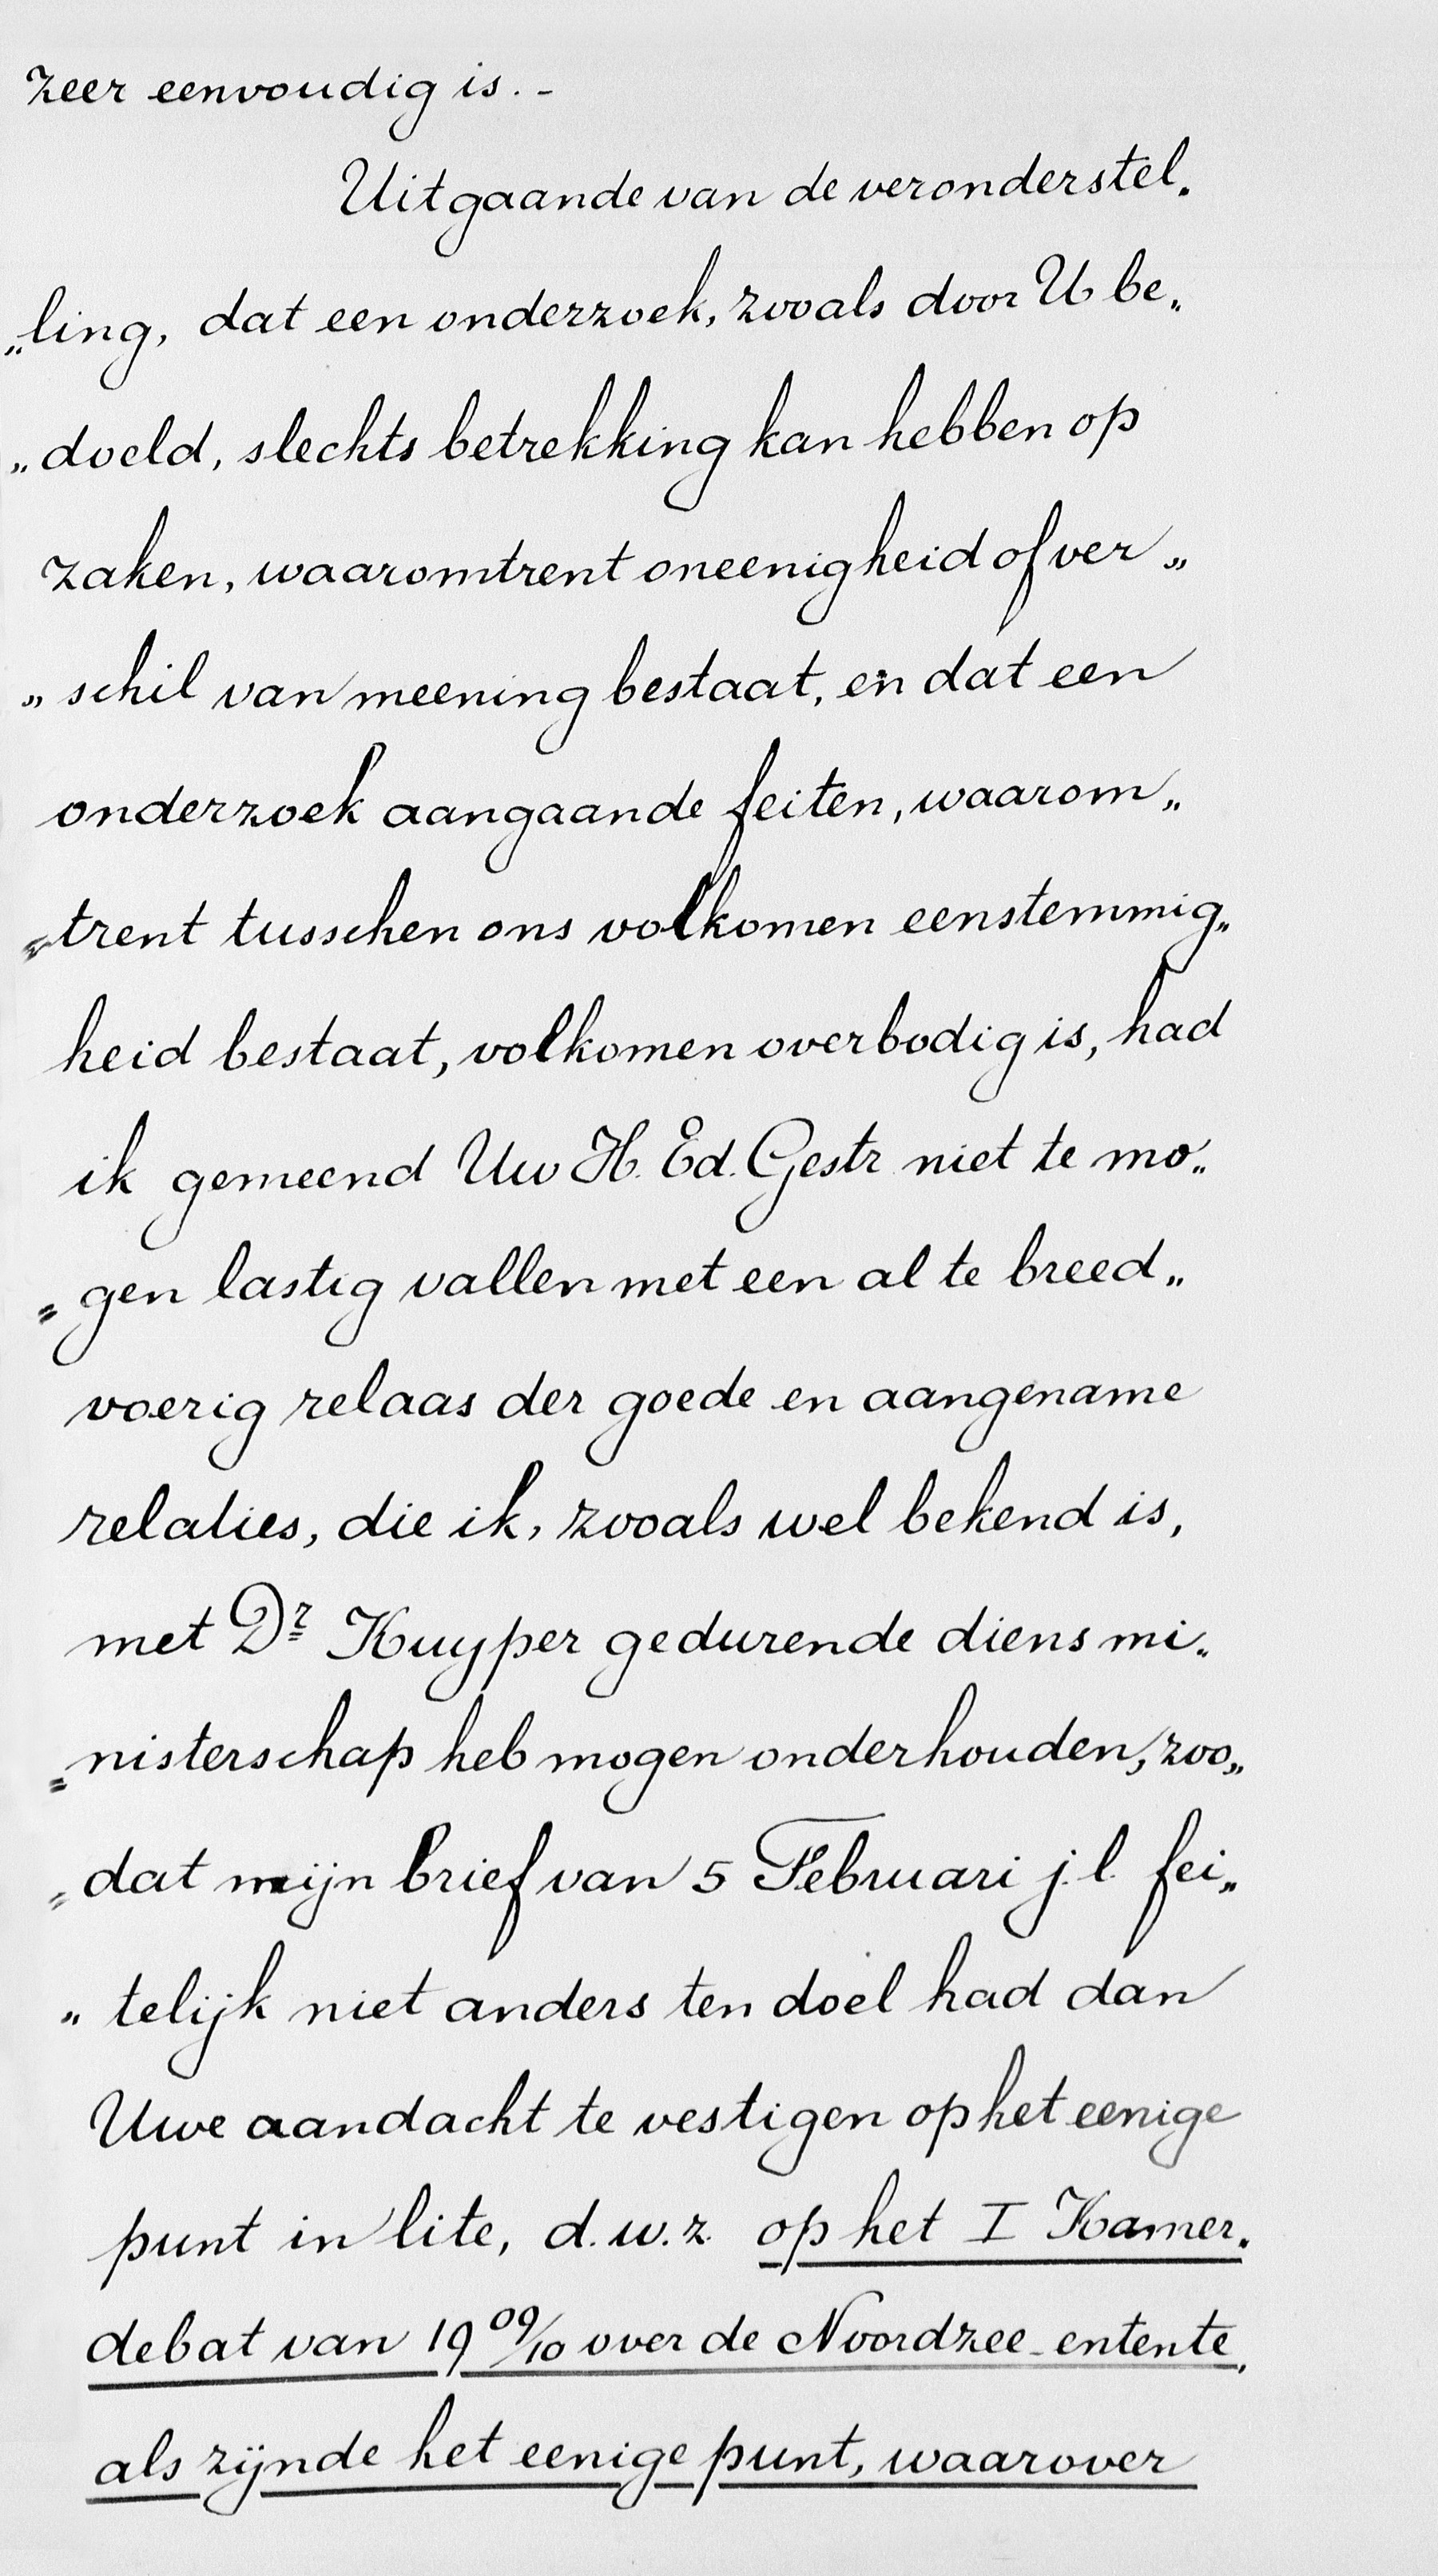 zeer eenvoudig is. -
Uitgaande van de veronderstel„
„ling, dat een onderzoek, zooals door U be„
„doeld, slechts betrekking kan hebben op
zaken, waaromtrent oneenigheid of ver„
„schil van meening bestaat, en dat een
onderzoek aangaande feiten, waarom„
„trent tusschen ons volkomen eenstemmig„
heid bestaat, volkomen overbodig is, had
ik gemeend Uw H. Ed. Gestr niet te mo„
„gen lastig vallen met een al te breed„
voerig relaas der goede en aangename
relaties, die ik, zooals wel bekend is,
met Dr Kuyper gedurende diens mi„
„nisterschap heb mogen onderhouden, zoo„
„dat mijn brief van 5 Februari j.l. fei„
„telijk niet anders ten doel had dan
Uwe aandacht te vestigen op het eenige
punt in lite, d.w.z. op het I Kamer„
debat van 1909/10 over de Noordzee-entente,
als zijnde het eenige punt, waarover